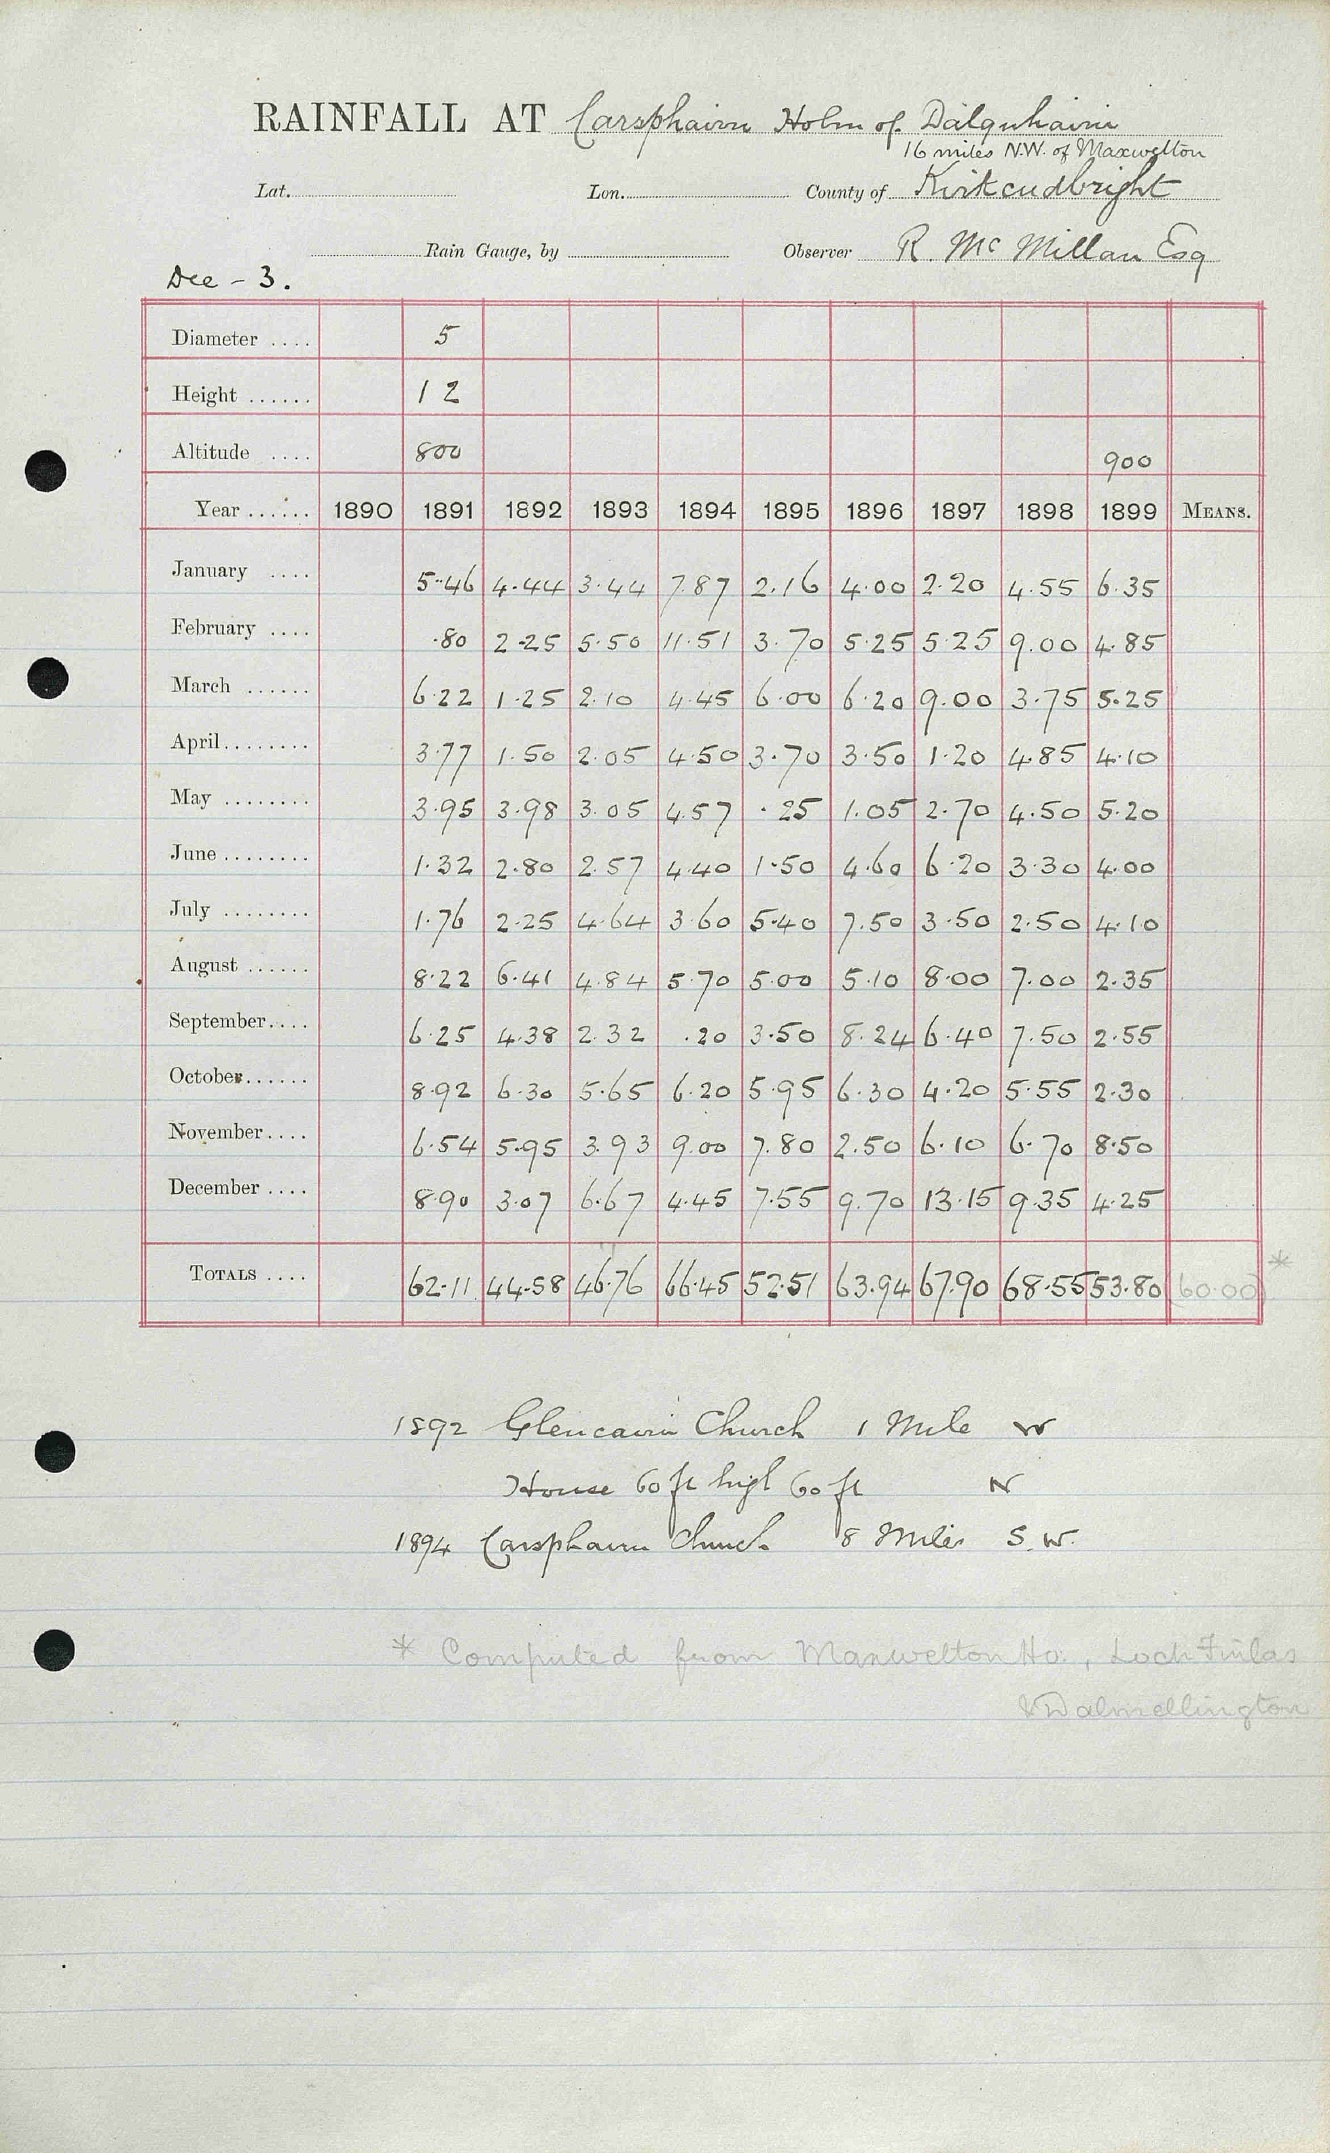 RAINFALL AT Carsphairn Holm of Dalquhairn
16 miles N.W. of Maxwelton
Lat. Lon. County of Kirkcudbright
Rain Gauge, by Observer R. Mc Millan Esq
Dee - 3.
Diameter .... 5
Height ...... 12
Altitude .... 800 900
Year ...... 1890 1891 1892 1893 1894 1895 1896 1897 1898 1899 MEANS.
January .... 5.46 4.44 3.44 7.87 2.16 4.00 2.20 4.55 6.35
February .... .80 2.25 5.50 11.51 3.70 5.25 5.25 9.00 4.85
March ...... 6.22 1.25 2.10 4.45 6.00 6.20 9.00 3.75 5.25
April........ 3.77 1.50 2.05 4.50 3.70 3.50 1.20 4.85 4.10
May ........ 3.95 3.98 3.05 4.57 .25 1.05 2.70 4.50 5.20
June ........ 1.32 2.80 2.57 4.40 1.50 4.60 6.20 3.30 4.00
July ........ 1.76 2.25 4.64 3.60 5.40 7.50 3.50 2.50 4.10
August ...... 8.22 6.41 4.84 5.70 5.00 5.10 8.00 7.00 2.35
September.... 6.25 4.38 2.32 .20 3.50 8.24 6.40 7.50 2.55
October...... 8.92 6.30 5.65 6.20 5.95 6.30 4.20 5.55 2.30
November.... 6.54 5.95 3.93 9.00 7.80 2.50 6.10 6.70 8.50
December .... 8.90 3.07 6.67 4.45 7.55 9.70 13.15 9.35 4.25
TOTALS .... 62.11 44.58 46.76 66.45 52.51 63.94 67.90 68.55 53.80 (60.00) *
1892 Glencairn Church 1 Mile W
House 60 ft high 60 ft N
1894 Carsphairn Church 8 Miles S.W.
* Computed from Maxwelton Ho., Loch Finlas
& Dalmellington